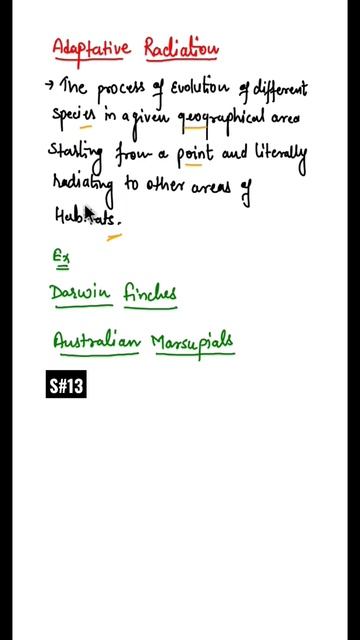 Adaptative Radiation
→ The process of Evolution of different
Species in a given geographical area
Starting from a point and literally
radiating to other areas of
Habitats.
Ex
Darwin finches
Australian Marsupials
S#13